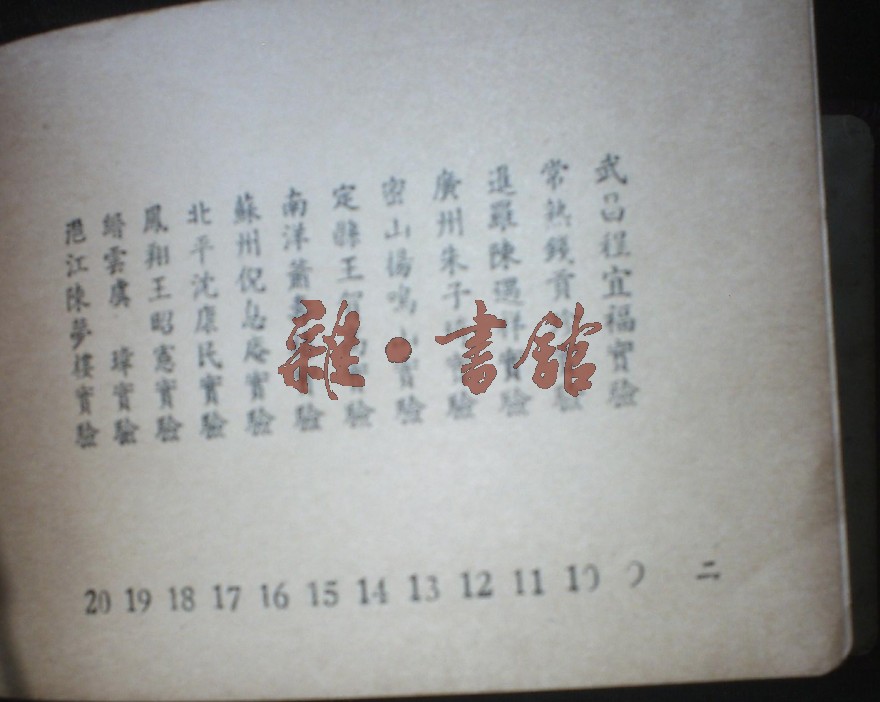 武昌程宜福實驗
常熟錢貢實驗
暹羅陳遇祥實驗
廣州朱子實驗
密山楊鳴山實驗
定縣王實驗
南洋蕭驗
蘇州倪怂庵實驗
北平沈康民實驗
鳳翔王昭憲實驗
縉雲虞 瑋實驗
江陳夢樓實驗
二
9 10 11 12 13 14 15 16 17 18 19 20
雜·書館